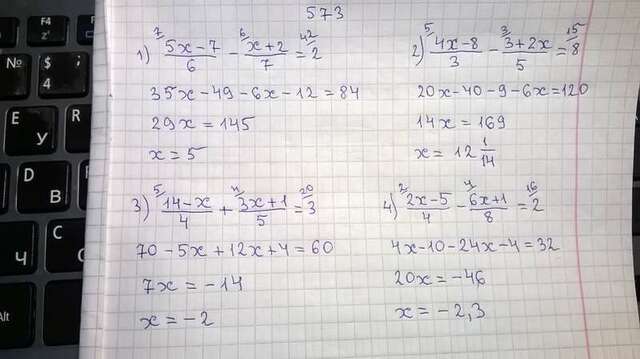 573
1) 7/ (5x-7)/6 - 6/ (x+2)/7 = 42/ 2
35x-49-6x-12=84
29x=145
x=5
2) 5/ (4x-8)/3 - 3/ (3+2x)/5 = 15/ 8
20x-40-9-6x=120
14x=169
x=12 1/14
3) 5/ (14-x)/4 + 4/ (3x+1)/5 = 20/ 3
70-5x+12x+4=60
7x=-14
x=-2
4) 2/ (2x-5)/4 - 4/ (6x+1)/8 = 16/ 2
4x-10-24x-4=32
20x=-46
x=-2,3
F4
z'
F5
№
$
4
E
У
R
D
В
F
C
Ч
Alt